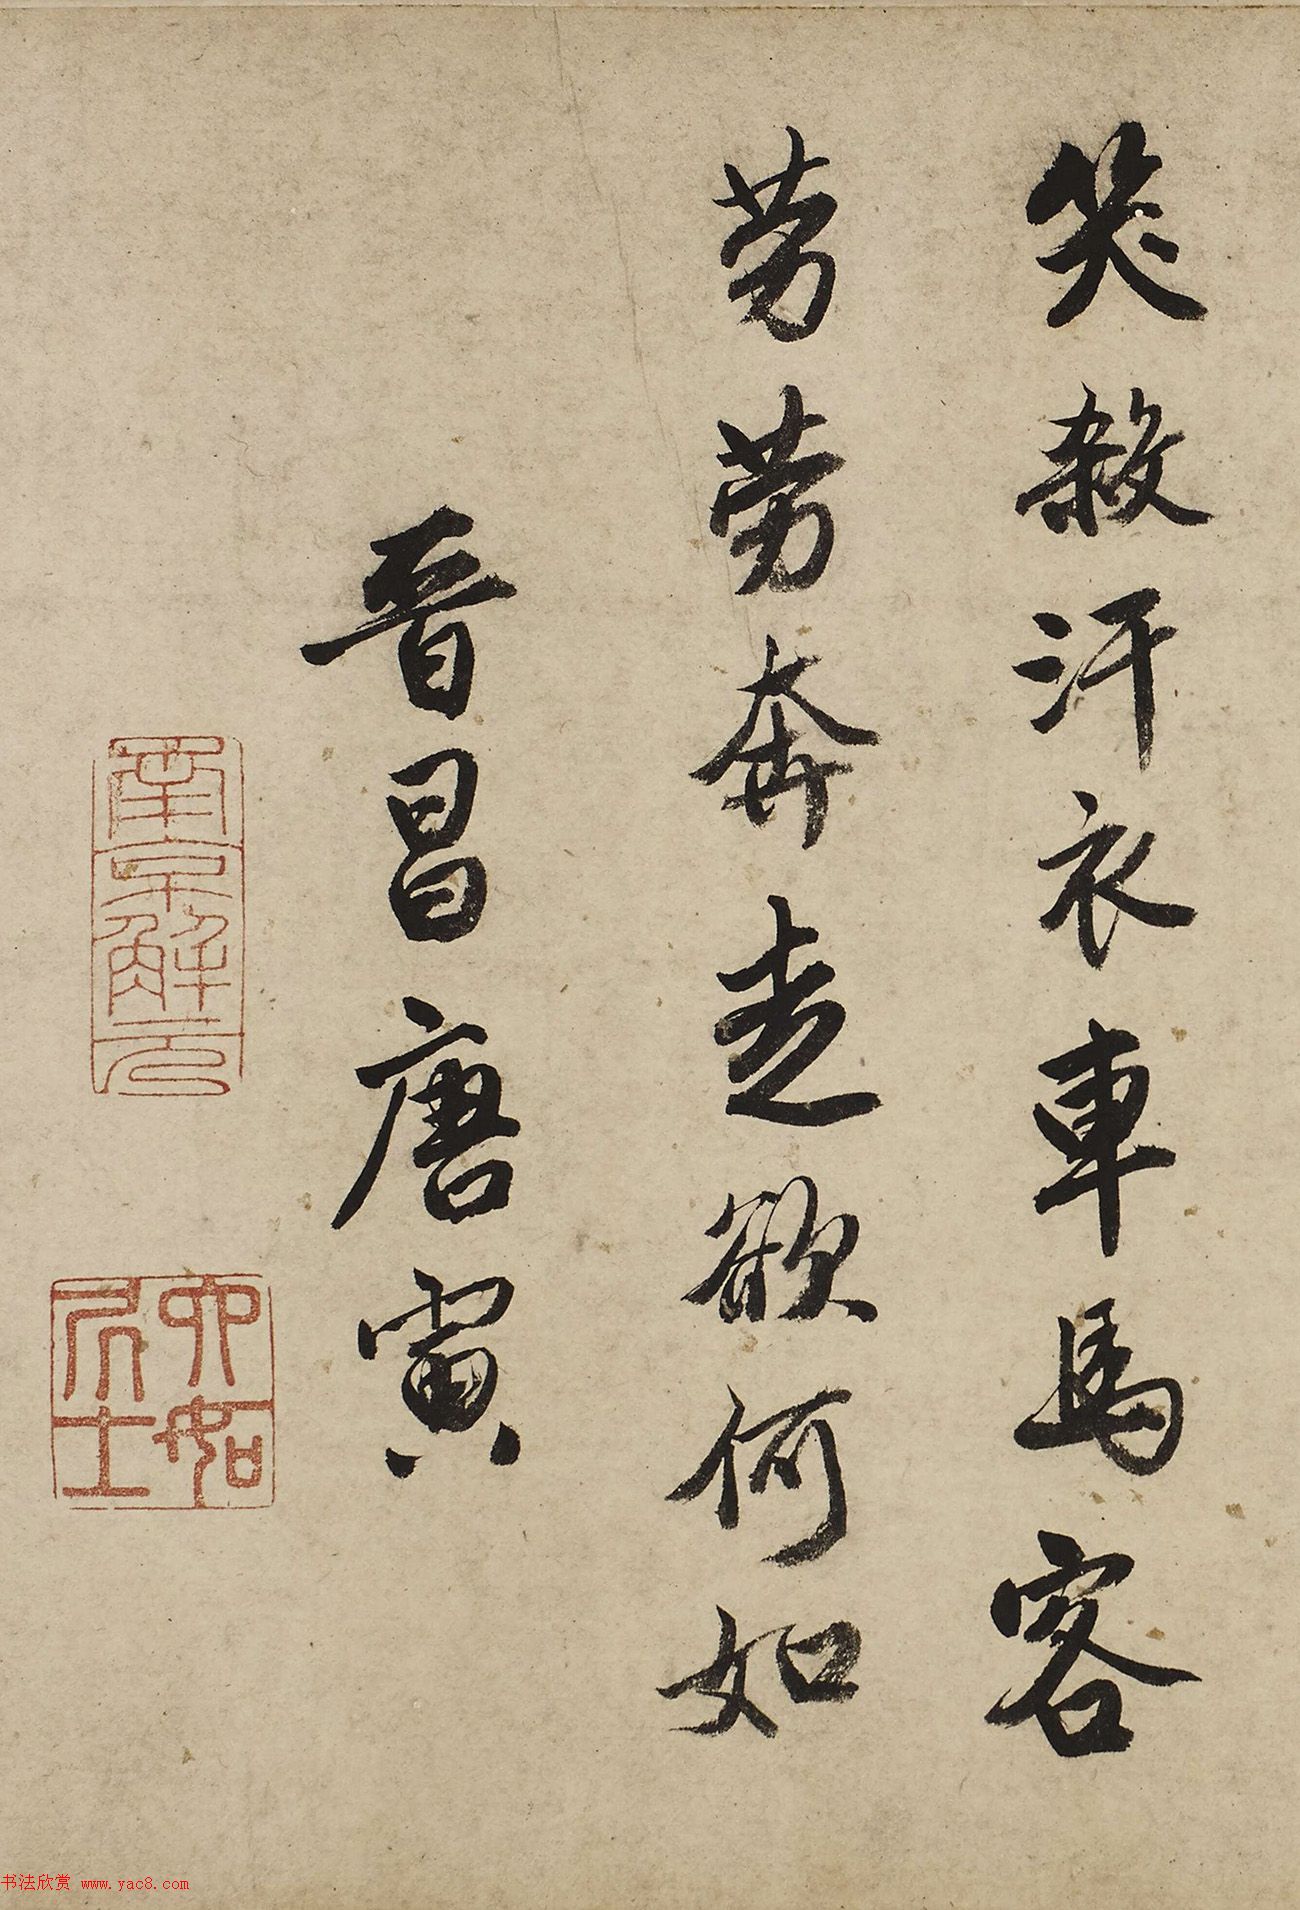 笑殺汗衣車馬客
劳劳奔走欲何如
晉昌唐寅
南京解元
六如居士
书法欣赏 www.yac8.com